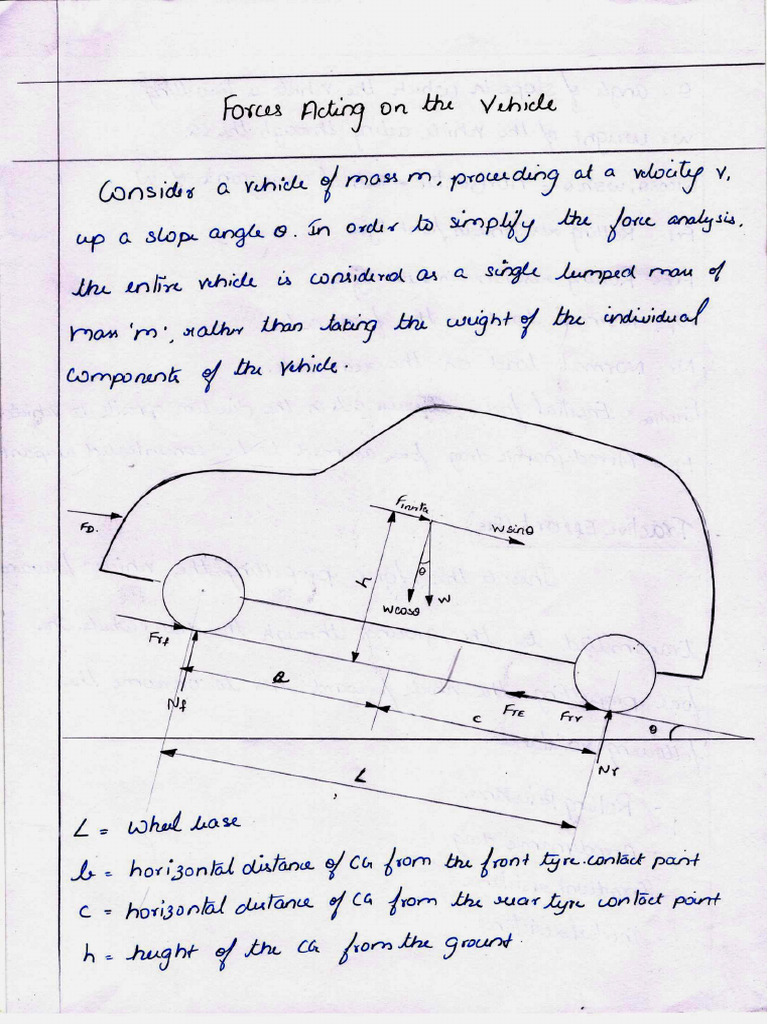 Forces Acting on the Vehicle
Consider a vehicle of mass m, proceeding at a velocity v,
up a slope angle θ. In order to simplify the force analysis,
the entire vehicle is considered as a single lumped mass of
mass 'm', rather than taking the weight of the individual
components of the vehicle.
Finertia
FD.
W sinθ
θ
h
Wcosθ
W
Frf
Nf
FTE
Frr
c
θ
Nr
L
L = Wheel base
b = horizontal distance of CG from the front tyre contact point
c = horizontal distance of CG from the rear tyre contact point
h = height of the CG from the ground.